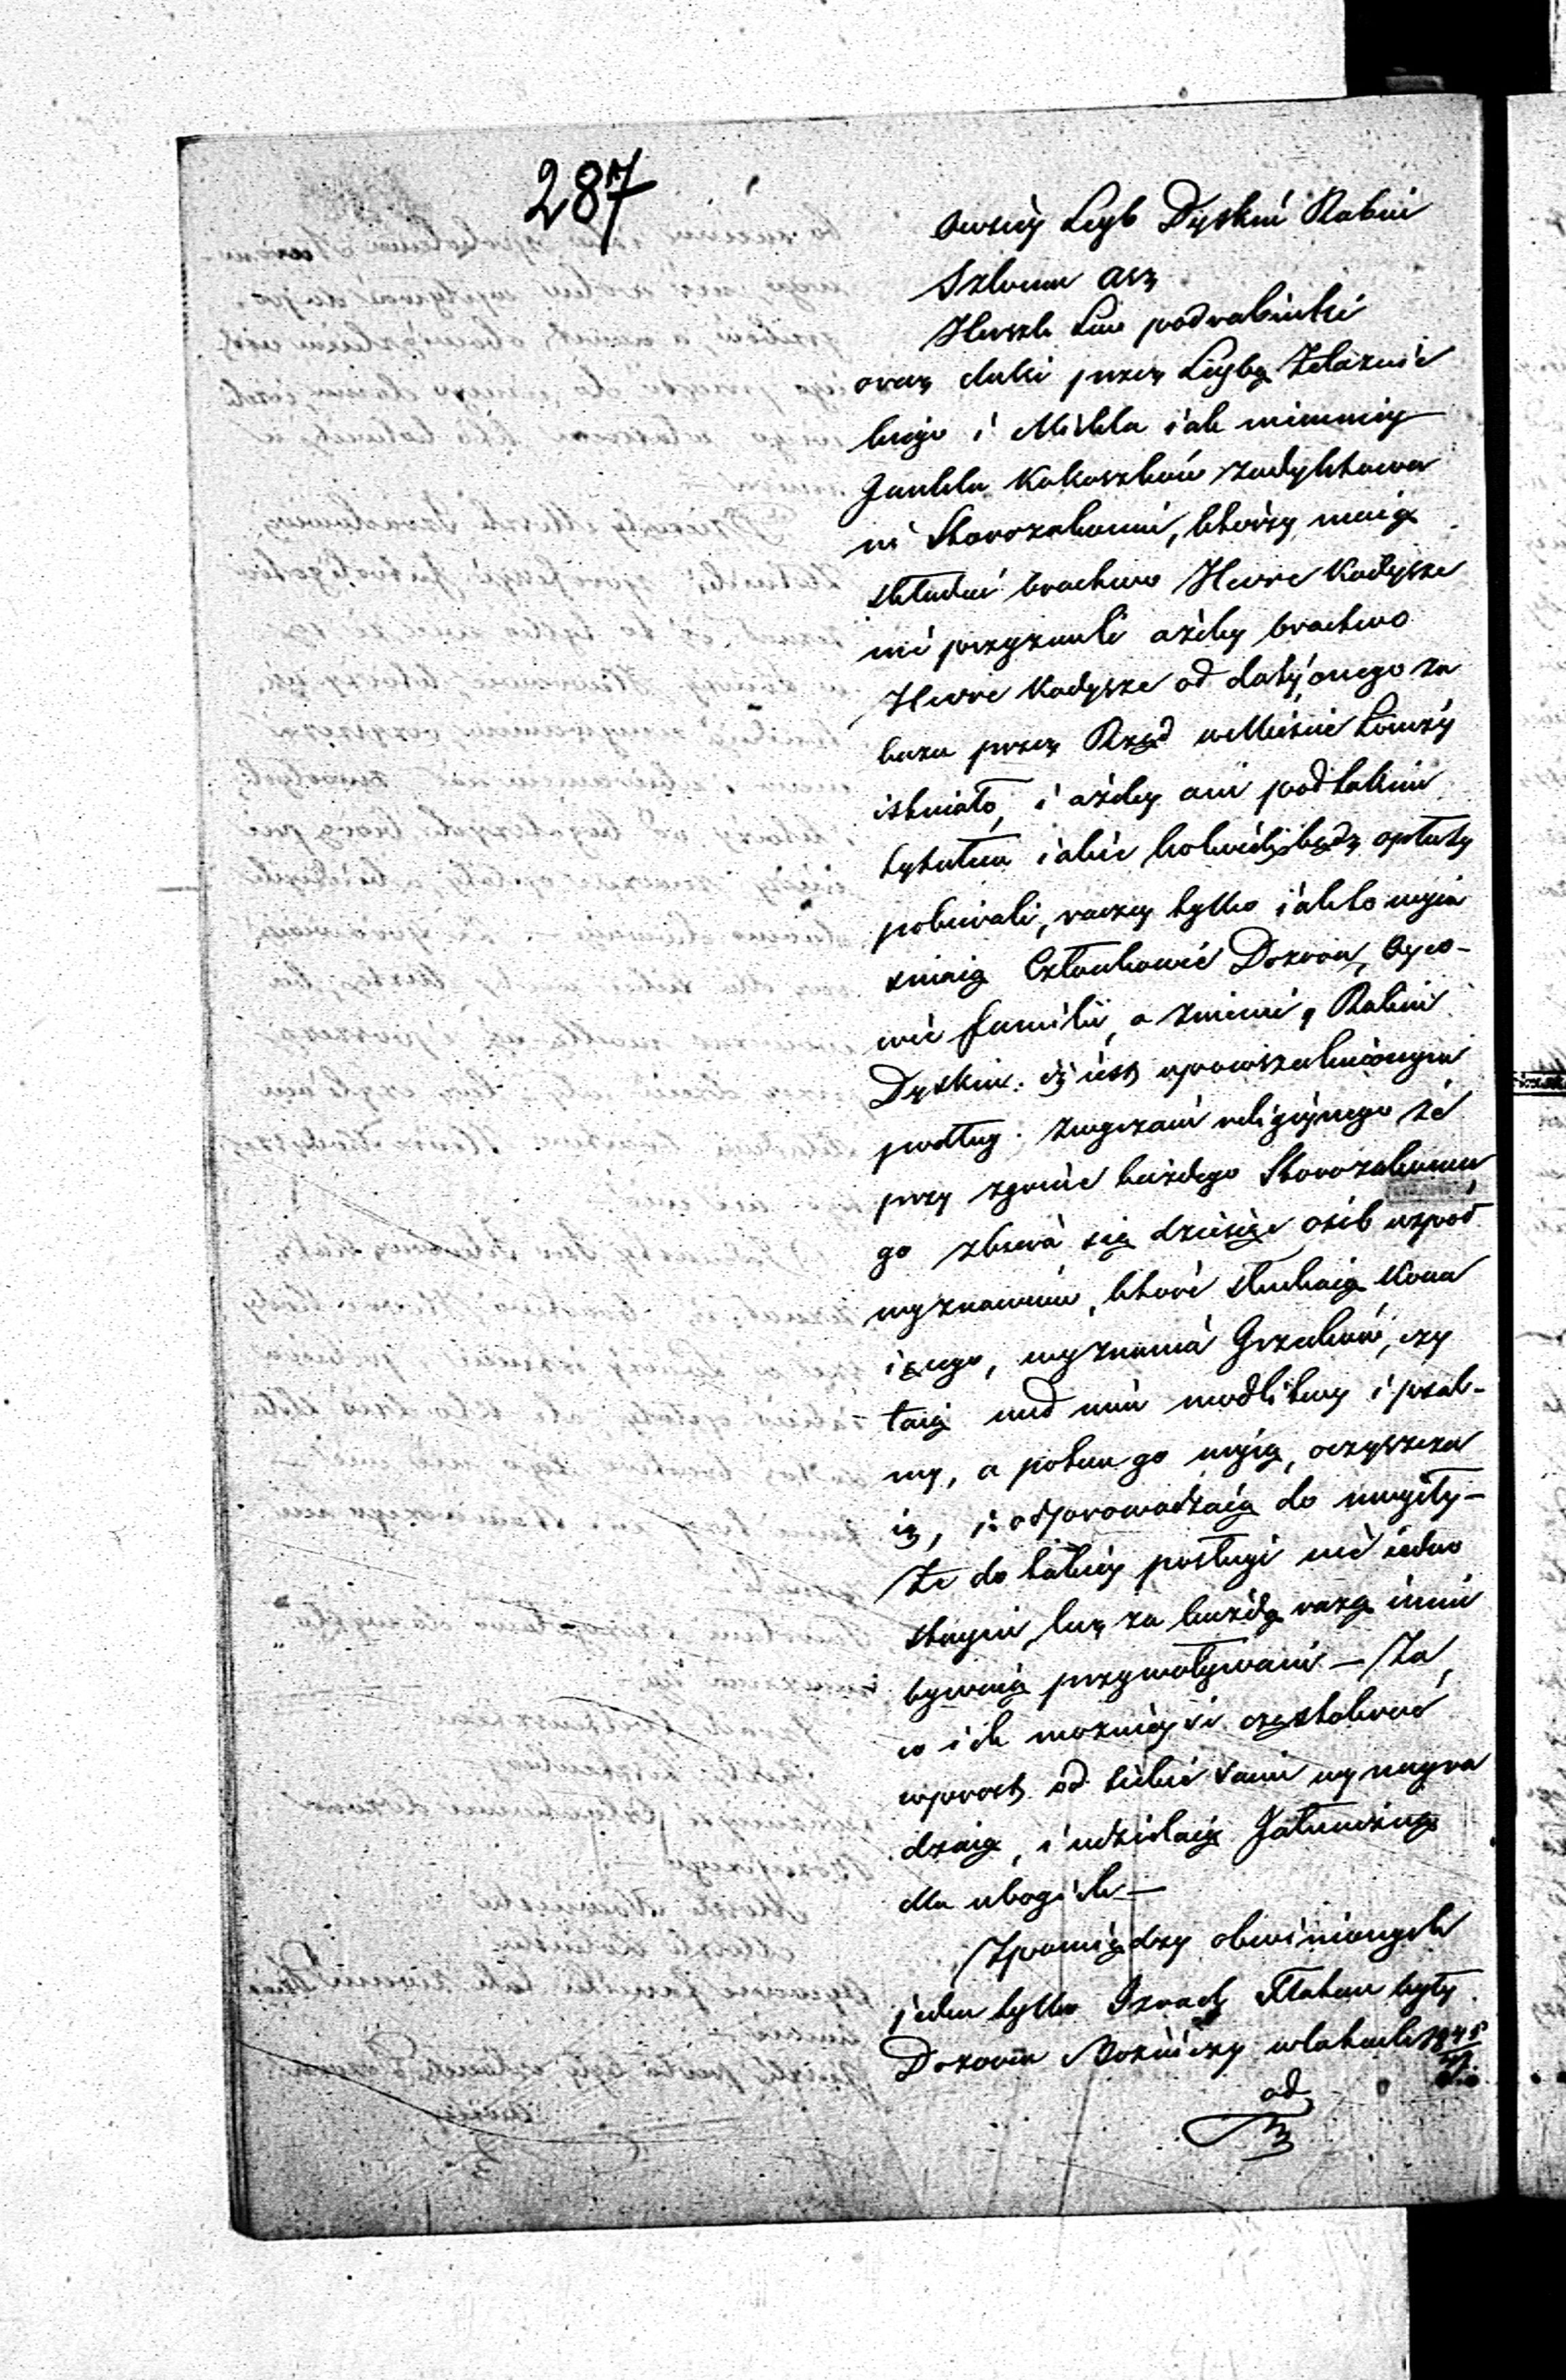 287
Owsiey Leyb Dyskin Rabin
Szloma Asz
Herszk Lew podrabinki
oraz dalsi przez Leybę Żelaznie
kiego i Mihla jak niemniey
Jankla Kokoszków zadyktowa
ni Starozakonni, którzy maią
składać bractwo Hewre Kadysze
nie przyznali ażeby bractwo
Hewre Kadysze od daty onego za
kazu przez Rząd w Mieście Łomży
istniało, i ażeby oni pod takim
tytułem iakie kolwiek bądź opłaty
pobierali, raczey tylko iak to wyia
śniaią Członkowie Dozoru, Oyco-
wie familii, a mianowicie Rabin
Dyskin. iż iest upowszechnionym
podług zwyczaiu religijnego że
przy zgonie każdego Starozakonne
go zbiera się dziesięć osób współ
wyznawców, które słuchaią Kona
iącego, wyznania Grzechów, czy
taią nad nim modlitwy i psal-
my, a potem go myią, oczyszcza
ią, i odprowadzaią do mogiły -
że do takiey posługi nie iedno
staynie, lecz za każdą razą inni
bywaią przywoływani — Za
co ich możnieysi częstokroć
wprost od siebie sami wynagra
dzaią, i udzielaią Jałmużnę
dla ubogich —
Zpomiędzy obwinionych
jeden tylko Izrael Flatau były
Dozorca Bożniczy w latach 1845
od